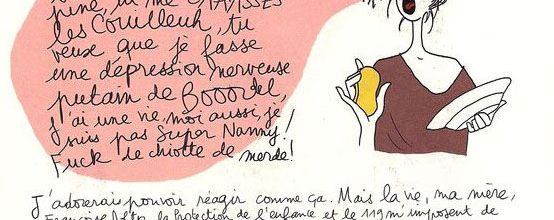 pine, tu me CHAVISSES
les Couilleuh, tu
veux que je fasse
une dépression nerveuse
putain de Booordel,
j'ai une vie, moi aussi, je
suis pas Super Nanny!
Fuck de chiotte de merde!
J'adorerais pouvoir réagir comme ça. Mais la vie, ma mère,
Françoise Dolto, la Protection de l'enfance et le 119 m'imposent de